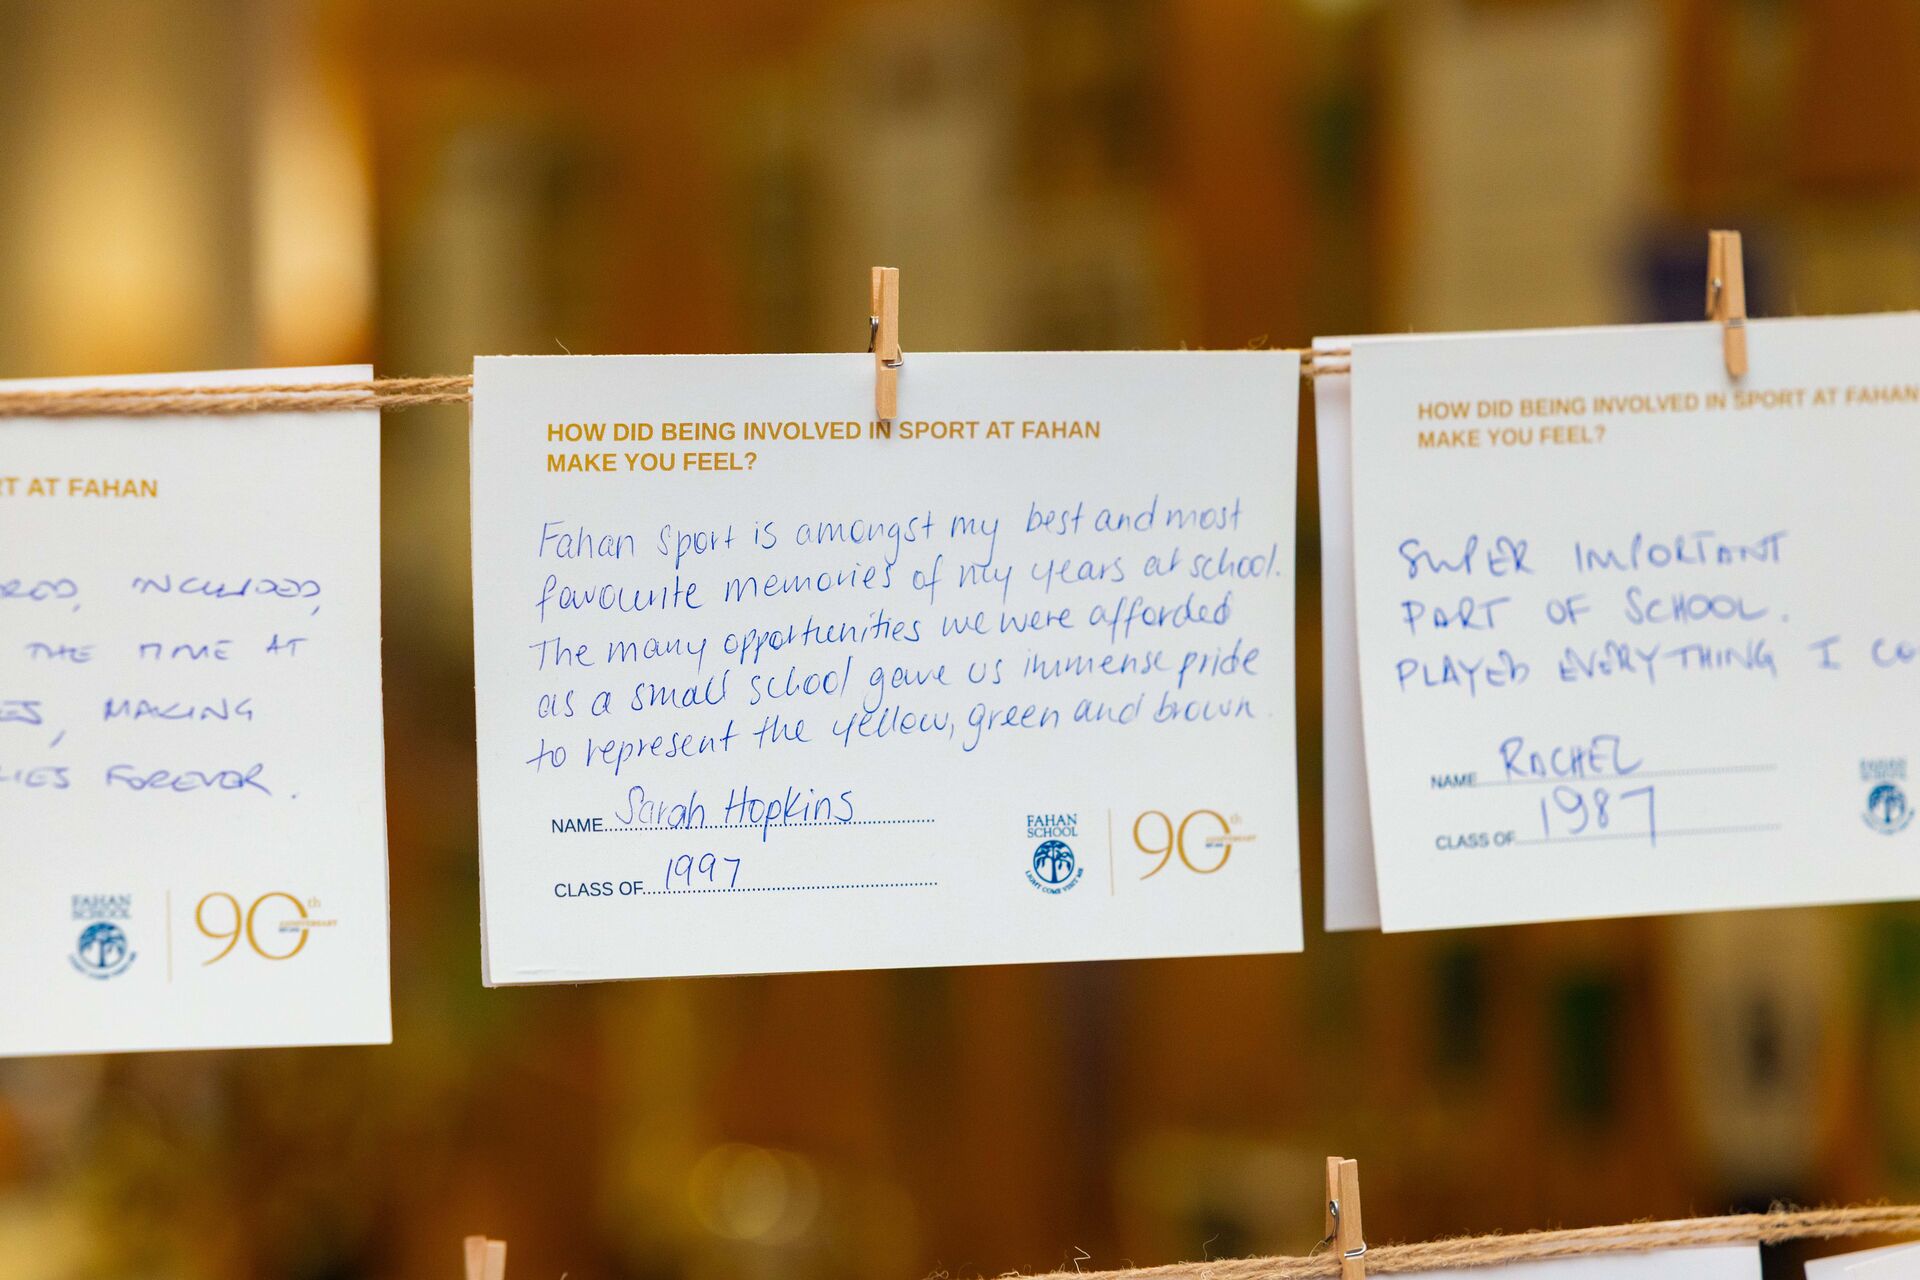 RT AT FAHAN
INCLUDED,
THE TIME AT
MAKING
FOREVER.
FAHAN
SCHOOL
90th
ANNIVERSARY
HOW DID BEING INVOLVED IN SPORT AT FAHAN
MAKE YOU FEEL?
Fahan Sport is amongst my best and most
favourite memories of my years at school.
The many opportunities we were afforded
as a small school gave us immense pride
to represent the yellow, green and brown.
NAME Sarah Hopkins
CLASS OF 1997
FAHAN
SCHOOL
LIGHT COME VISIT ME
90th
ANNIVERSARY
HOW DID BEING INVOLVED IN SPORT AT FAHAN
MAKE YOU FEEL?
SUPER IMPORTANT
PART OF SCHOOL.
PLAYED EVERYTHING I CO
NAME RACHEL
CLASS OF 1987
FAHAN
SCHOOL